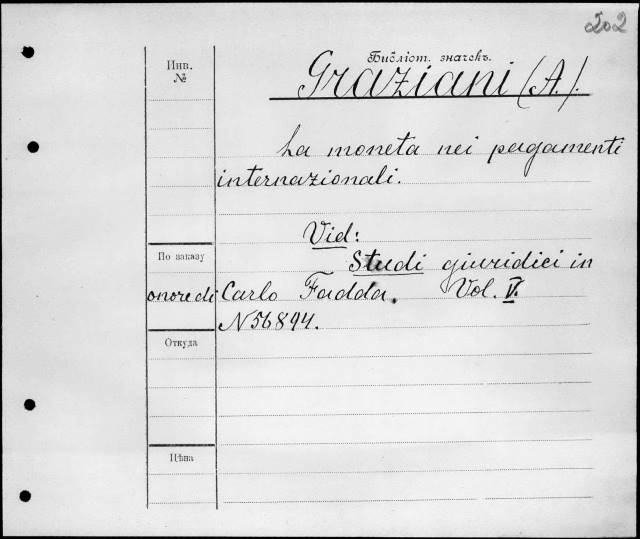 202
Библіот. значекъ.
Инв.
№
Graziani (A.).
La moneta nei pagamenti
internazionali.
Vid:
По заказу
Studi giuridici in
onore di Carlo Fadda. Vol. V.
N 56894.
Откуда
Цѣна